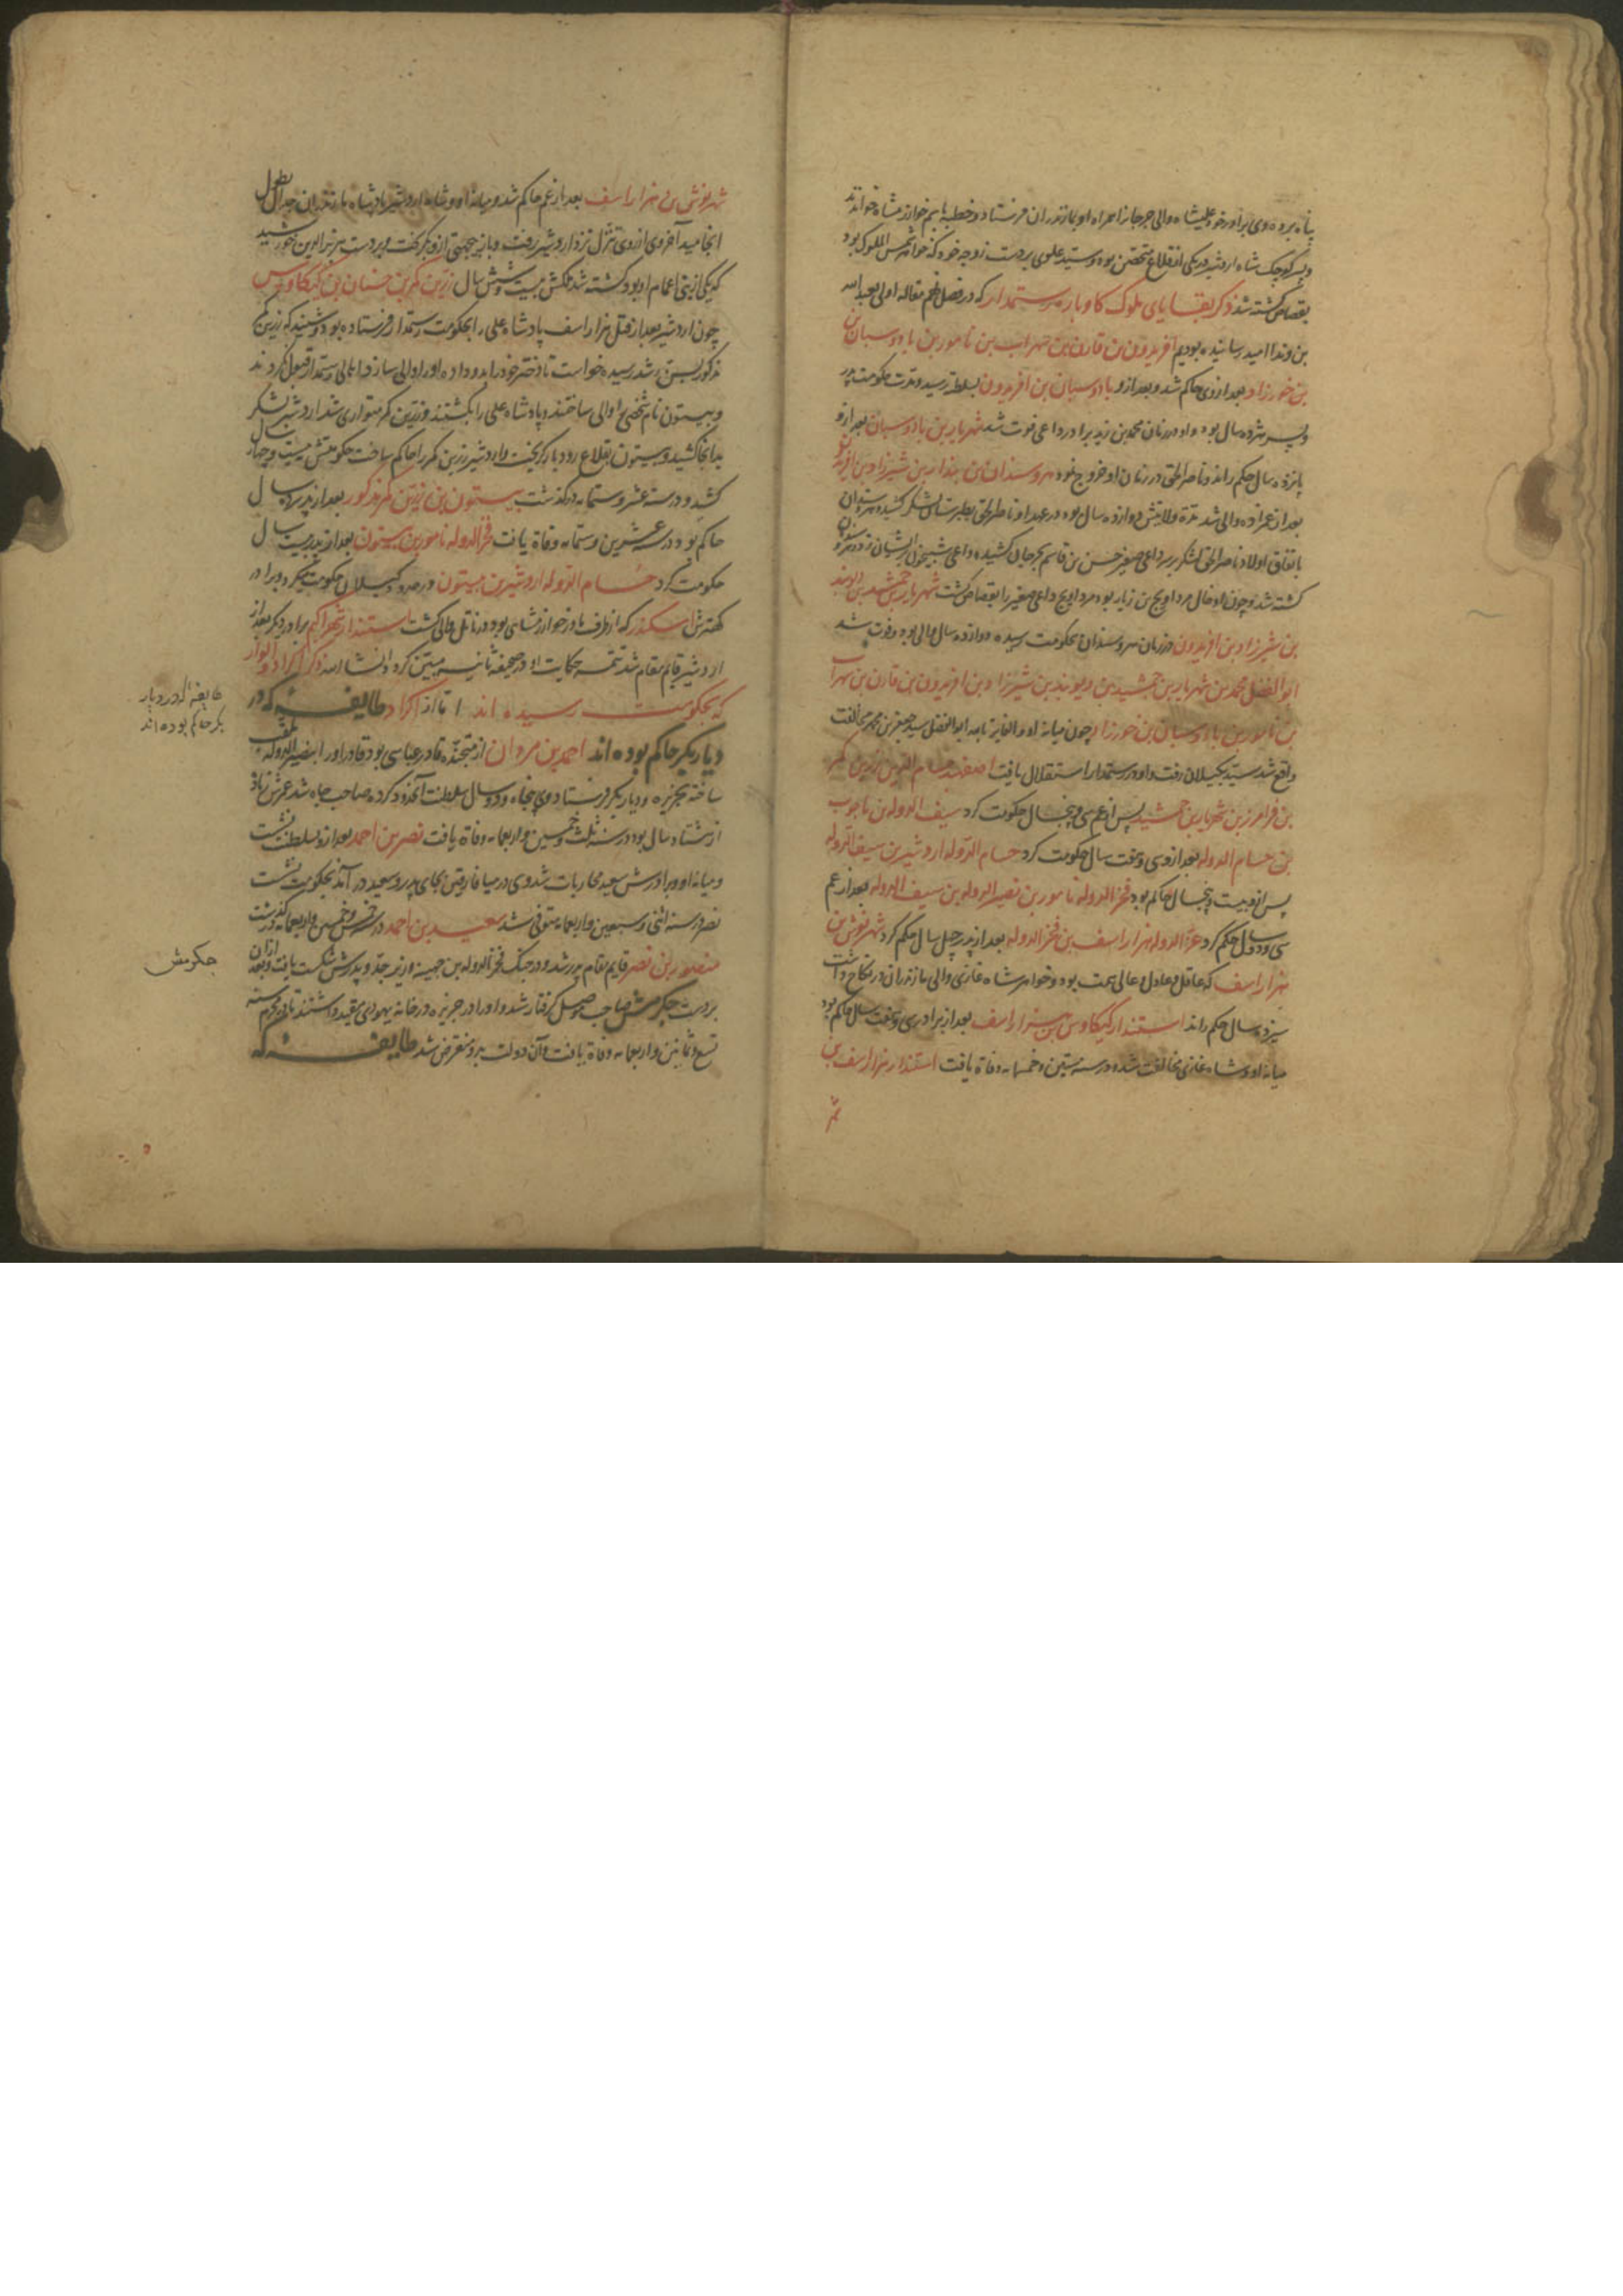 پناه برد و وی برادر خود علیشاه والی جرجان را همراه او بمازندران فرستاد و خطبه بنام خوارزمشاه خواندند
و پسر کوچک شاه اردشیر که در یکی از قلاع متحصن بود و سید علوی بر دست زوجه خود که خواهر شمس الملوک بود
بقصاص کشته شد ذکر بقایای ملوک کاوباره رستمدار که در فصل پنجم مقاله اولی بعبدالله
بن وندا امید رسانیده بودیم آفریدون بن قارن بن سهراب بن نامور بن بادوسبان بن
بن خورزاد بعد از وی حاکم شد و بعد ازو بادوسبان بن افریدون بسلطنت رسید و مدت حکومت پدر
و پسر هژده سال بود و او در زمان محمد بن زید برادر داعی فوت شد شهریار بن بادوسبان بعد ازو
پانزده سال حکم راند و ناصر الحق در زمان او خروج نمود هروسندان بن بندار بن شیرزاد بن افریدون
بعد از عمزاده والی شد مدة ولایتش دوازده سال بود در عهد او ناصر الحق بطبرستان لشکر کشید و هروسندان
باتفاق اولاد ناصر الحق لشکر بر سر داعی صغیر حسن بن قاسم بجرجان کشیده داعی شبیخون بر ایشان زد و هروسندان
کشته شد و چون او خال مرداویج بن زیار بود مرداویج داعی صغیر را بقصاص کشت شهریار بن جمشید بن دیوبند
بن شیرزاد بن افریدون در زمان هروسندان بحکومت رسیده دوازده سال والی بود و فوت شد
ابوالفضل محمد بن شهریار بن جمشید بن دیوبند بن شیرزاد بن افریدون بن قارن بن سهراب
بن نامور بن بادوسبان بن خورزاد چون میانه او و الثایر بالله ابوالفضل سید جعفر بن محمد مخالفت
واقع شد سید بجیلان رفت و او در رستمدار استقلال یافت اصفهبد حسام الدین زرین کمر
بن فرامرز بن شهریار بن جمشید پس از عم سی و پنج سال حکومت کرد سیف الدوله بن باحرب
بن حسام الدوله بعد از وی بیست و هفت سال حکومت کرد حسام الدوله اردشیر بن سیف الدوله
پس ازو بیست و پنج سال حاکم بود فخر الدوله نامور بن نصیر الدوله بن سیف الدوله بعد از عم
سی و دو سال حکم کرد عز الدوله هزار اسف بن فخر الدوله بعد از پدر چهل سال حکم کرد شهرنوش بن
هزار اسف که عاقل و عادل و عالی همت بود و خواهر شاه غازی والی مازندران در نکاح داشت
سیزده سال حکم راند استندار کیکاوس بن هزار اسف بعد از برادر سی و هفت سال حاکم بود
میانه او و شاه غازی مخالفت شد و در سنه ستین و خمسمایه وفاة یافت استندار هزار اسف بن
شهر
شهرنوش بن هزار اسف بعد از عم حاکم شد و میانه او و شاه اردشیر پادشاه مازندران جدال بطول
انجامید آخر وی از روی تنزل نزد اردشیر رفت و باز بجهتی ازو برگشت و بر دست هزبرالدین خورشید
که یکی از بنی اعمام او بود کشته شد ملکش بیست و شش سال زرین کمر بن جستان بن کیکاوس
چون اردشیر بعد از قتل هزار اسف پادشاه علی را بحکومت رستمدار فرستاده بود و شنید که زرین کمر
مذکور بسن رشد رسیده خواست تا دختر خود را بدو داده او را والی سازد اهالی رستمدار قبول نکردند
و بیستون نام شخصی را والی ساختند و پادشاه علی را بکشتند و زرین کمر متواری شد اردشیر لشکر
بدانجا کشید و بیستون بقلاع رودبار گریخت و اردشیر زرین کمر را حاکم ساخت حکومتش بیست و چهار سال
کشید و در سنه عشر و ستمایه درگذشت بیستون بن زرین کمر مذکور بعد از پدر ده سال
حاکم بود در سنه عشرین و ستمایه وفاة یافت فخر الدوله نامور بن بیستون بعد از پدر بیست سال
حکومت کرد حسام الدوله اردشیر بن بیستون در حدود کیلان حکومت میکرد و برادر
کهترش اسکندر که از طرف مادر خوارزمشاهی بود در ناتل والی گشت استندار شهراکیم برادر دیگر بعد از
اردشیر قایم مقام شد تتمه حکایت او در صحیفه ثانیه مبین گردد انشاء الله ذکر اکراد و الوار
که بحکومت رسیده اند اما از اکراد طایفه که در
دیار بکر حاکم بوده اند احمد بن مروان از متجنده قادر عباسی بود قادر او را بنصیر الدوله ملقب
ساخته بجزیره و دیاربکر فرستاد وی پنجاه و دو سال سلطنت آنحدود کرده صاحب جاه شد عمرش زیاده
از هشتاد سال بود در سنه ثلث و خمسین و اربعمایه وفاة یافت نصر بن احمد بعد ازو بسلطنت نشست
و میانه او و برادرش سعید محاربات شد وی در میافارقین بجای پدر و سعید در آمد بحکومت نشست
نصر در سنه اثنی و سبعین و اربعمایه متوفی شد سعید بن احمد در سنه خمس و خمسین و اربعمایه درگذشت
منصور بن نصر قایم مقام پدر شد و در جنگ فخر الدوله بن جهینه وزیر جد و پدرش شکست یافت و بعد از آن
بر دست جکرمش صاحب موصل گرفتار شد و او را در جزیره در خانه یهودی مقید داشتند تا در محرم سنه
تسع و ثمانین و اربعمایه وفاة یافت و آن دولت بدو منقرض شد طایفه که
طایفه که در دیار
بکر حاکم بوده اند
جکرمش